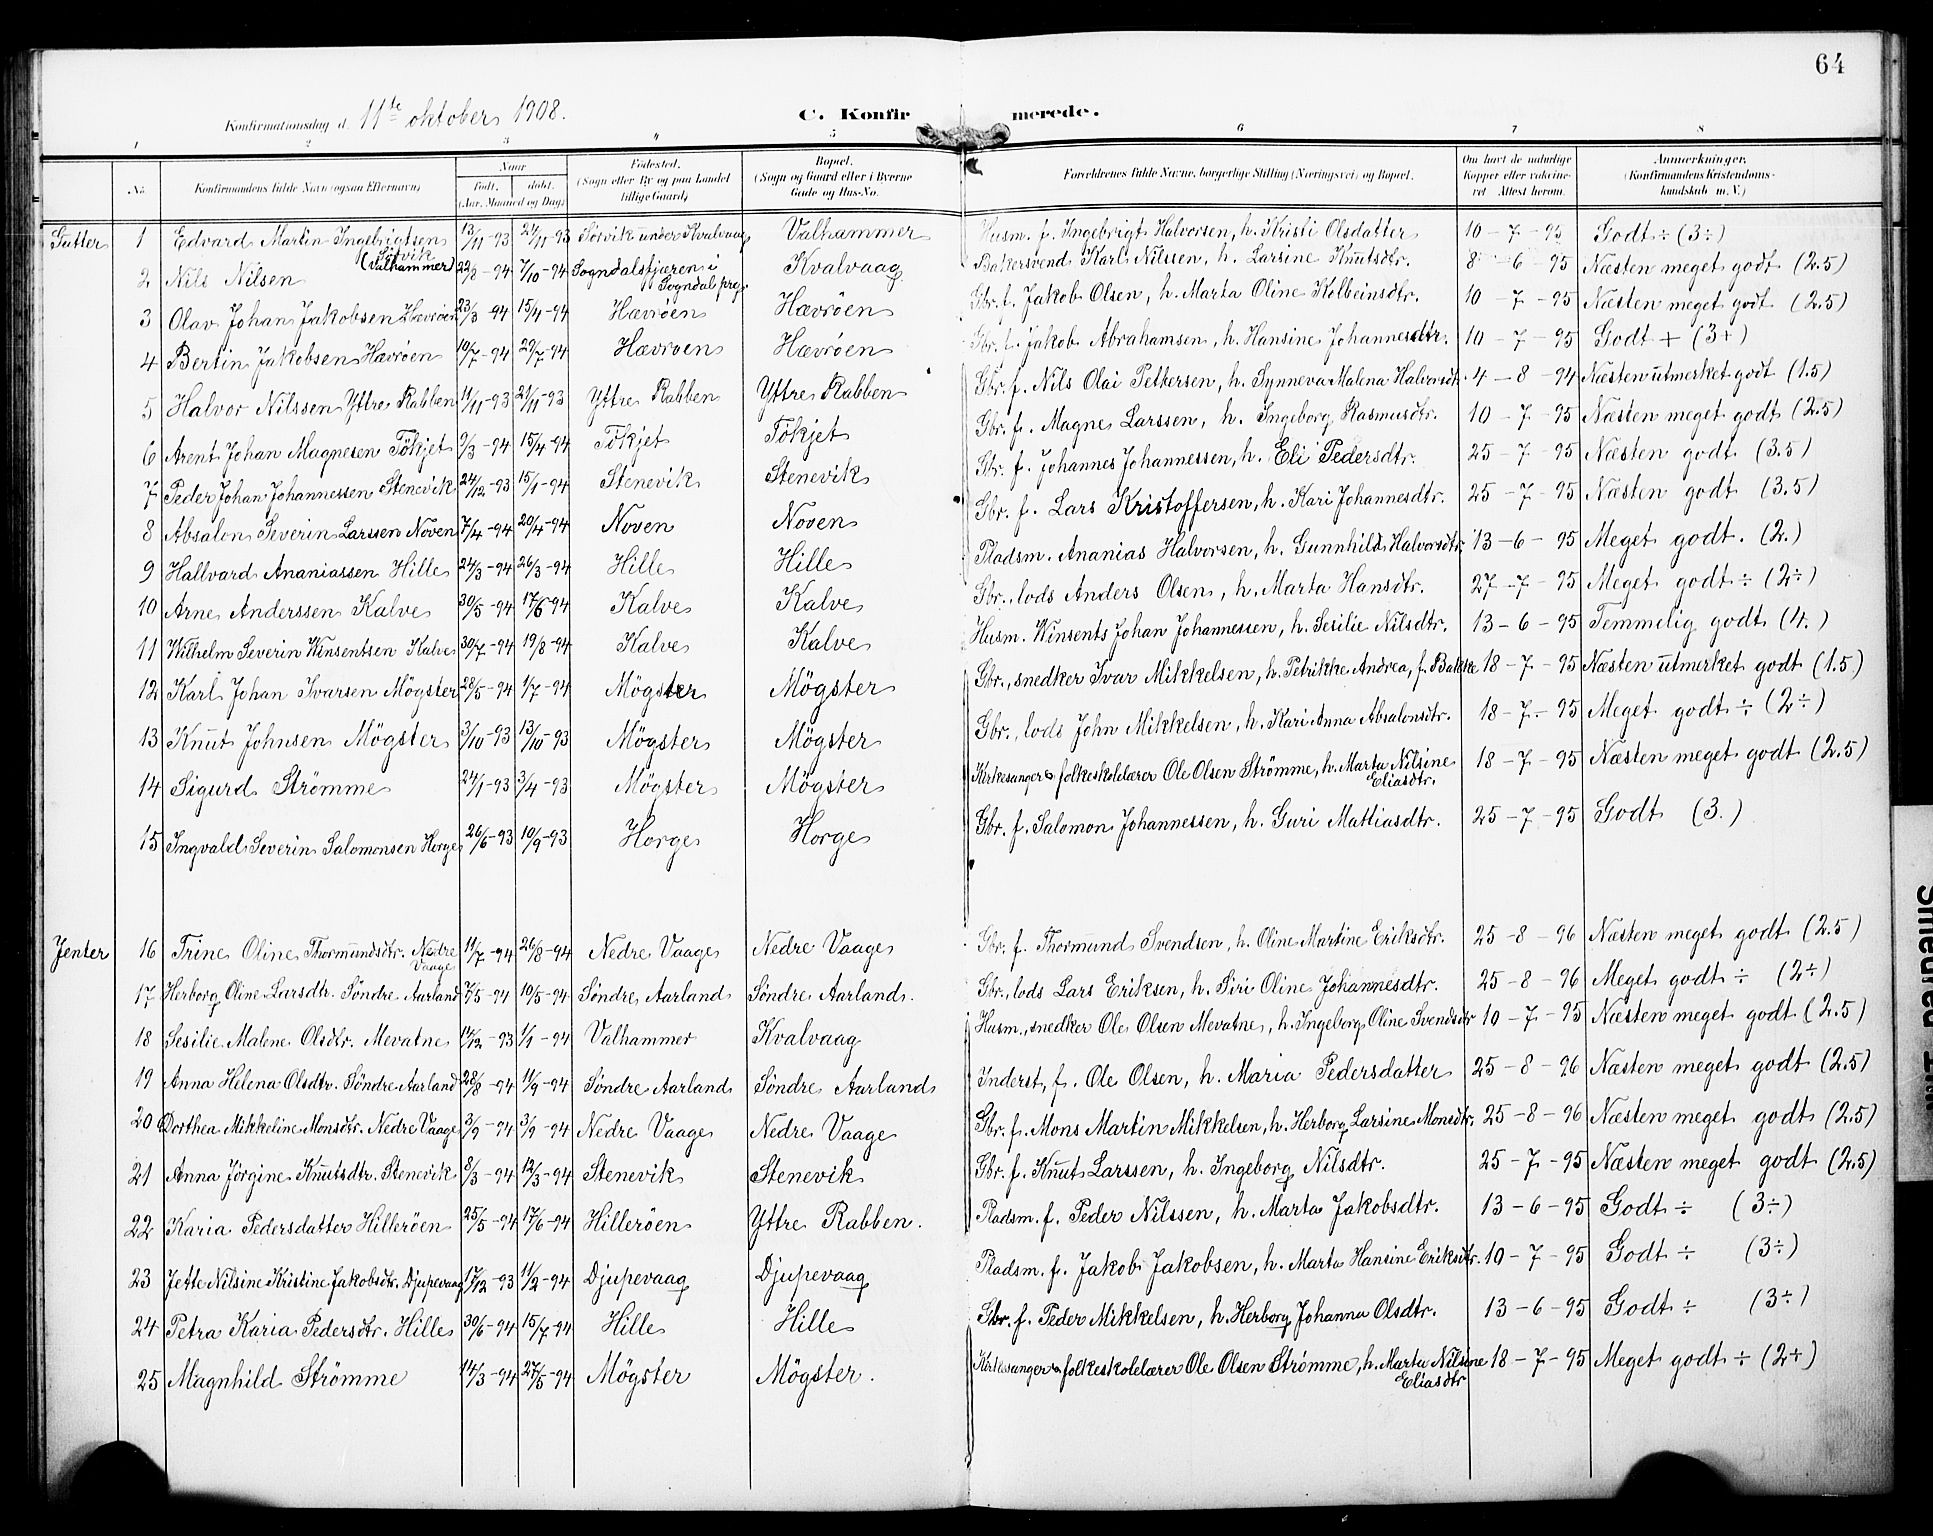 64
Konfirmationsdag d. 11te oktober 1908. C. Konfirmerede.
1 2 3 4 5 6 7 8
No. Konfirmandens fulde Navn (ogsaa Efternavn) Naar født. døbt. (Aar, Maaned og Dag) Fødested. (Sogn eller By og paa Landet tillige Gaard) Bopæl. (Sogn og Gaard eller i Byerne Gade og Hus-No. Forældrenes fulde Navne, borgerlige Stilling (Næringsvei) og Bopæl. Om havt de naturlige Kopper eller vaccineret Attest herom. Anmærkninger. (Konfirmandens Kristendomskundskab m. V.)
Gutter 1 Edvard Martin Ingebrigtsen Sörvik (Valhammer) 13/11-93 24/11-93 Sörvik under Kvalvaag Valhammer Husm. f. Ingebrigt Halvorsen, h. Kristi Olsdatter 10-7-95 Godt ÷ (3÷)
2 Nils Nilsen 22/8-94 7/10-94 Sogndalstjæren i Sogndal prg. Kvalvaag Bakersvend Karl Nilssen, h. Larsine Knutsdtr. 8-6-95 Næsten meget godt (2.5)
3 Olav Johan Jakobsen Hævröen 23/3-94 15/4-94 Hævröen Hævröen Gbr. f. Jakob Olsen, h. Marta Oline Kolbeinsdtr. 10-7-95 Næsten meget godt (2.5)
4 Bertin Jakobsen Hævröen 10/7-94 29/7-94 Hævröen Hævröen Gbr. f. Jakob Abrahamsen, h. Hansine Johannesdtr. 10-7-95 Godt + (3+)
5 Halvor Nilssen Yttre Rabben 11/11-93 21/11-93 Yttre Rabben Yttre Rabben Gbr. f. Nils Olai Pettersen, h. Synneva Malena Halvorsdtr. 4-8-94 Næsten utmerket godt (1.5)
6 Arent Johan Magnesen Tökjet 9/3-94 15/4-94 Tökjet Tökjet Gbr. f. Magne Larssen, h. Ingeborg Rasmusdtr. 10-7-95 Næsten meget godt (2.5)
7 Peder Johan Johannessen Stenevik 24/12-93 15/1-94 Stenevik Stenevik Gbr. f. Johannes Johannessen, h. Eli Pedersdtr. 25-7-95 Næsten godt (3.5)
8 Absalon Severin Larssen Noven 7/4-94 20/4-94 Noven Noven Gbr. f. Lars Kristoffersen, h. Kari Johannesdtr. 25-7-95 Næsten godt (3.5)
9 Hallvard Ananiassen Hille 24/3-94 26/3-94 Hille Hille Pladsm. Ananias Halvorsen, h. Gunnhild Halvorsdtr. 13-6-95 Meget godt. (2.)
10 Arne Anderssen Kalve 30/5-94 17/6-94 Kalve Kalve Gbr., lods Anders Olsen, h. Marta Hansdtr. 27-7-95 Meget godt ÷ (2÷)
11 Wilhelm Severin Winsentsen Kalve 30/7-94 19/8-94 Kalve Kalve Husm. Winsents Johan Johannessen, h. Sesilie Nilsdtr. 13-6-95 Temmelig godt (4.)
12 Karl Johan Ivarsen Mögster 28/5-94 1/7-94 Mögster Mögster Gbr., snedker Ivar Mikkelsen, h. Petrikke Andrea, f. Bakke 18-7-95 Næsten utmerket godt (1.5)
13 Knut Johnsen Mögster 3/10-93 13/10-93 Mögster Mögster Gbr., lods John Mikkelsen, h. Kari Anna Absalonsdtr. 18-7-95 Meget godt ÷ (2÷)
14 Sigurd Strömme 24/1-93 3/4-93 Mögster Mögster Kirkesanger & folkeskolelærer Ole Olsen Strömme, h. Marta Nilsine Eliasdtr. 18-7-95 Næsten meget godt (2.5)
15 Ingvald Severin Salomonsen Horge 26/6-93 10/9-93 Horge Horge Gbr. f. Salomon Johannessen, h. Guri Mattiasdtr. 25-7-95 Godt (3.)
Jenter 16 Trine Oline Thormundsdtr. Nedre Vaage 11/7-94 26/8-94 Nedre Vaage Nedre Vaage Gbr. f. Thormund Svendsen, h. Oline Martine Eriksdtr. 25-8-96 Næsten meget godt (2.5)
17 Herborg Oline Larsdtr. Söndre Aarland 7/5-94 10/5-94 Söndre Aarland Söndre Aarland. Gbr., lods Lars Eriksen, h. Siri Oline Johannesdtr. 25-8-96 Meget godt ÷ (2÷)
18 Sesilie Malene Olsdtr. Mevatne 12/12-93 1/1-94 Valhammer Kvalvaag Husm., snedker Ole Olsen Mevatne, h. Ingeborg Oline Svendsdtr 10-7-95 Næsten meget godt (2.5)
19 Anna Helena Olsdtr. Söndre Aarland 28/8-94 11/9-94 Söndre Aarland Söndre Aarland Inderst, f. Ole Olsen, h. Maria Pedersdatter 25-8-96 Næsten meget godt (2.5)
20 Dorthea Mikkeline Monsdtr. Nedre Vaage 3/9-94 3/9-94 Nedre Vaage Nedre Vaage Gbr. f. Mons Martin Mikkelsen, h. Herborg Larsine Monsdtr. 25-8-96 Næsten meget godt (2.5)
21 Anna Jörgine Knutsdtr. Stenevik 8/3-94 12/3-94 Stenevik Stenevik Gbr. f. Knut Larssen, h. Ingeborg Nilsdtr. 25-7-95 Næsten meget godt (2.5)
22 Karia Pedersdatter Hilleröen 25/5-94 17/6-94 Hilleröen Yttre Rabben. Pladsm. f. Peder Nilssen, h. Marta Jakobsdtr. 13-6-95 Godt ÷ (3÷)
23 Jette Nilsine Kristine Jakobsdtr. Djupevaag 17/12-93 11/2-94 Djupevaag Djupevaag Pladsm. f. Jakob Jakobsen, h. Marta Hansine Eriksdtr. 10-7-95 Godt ÷ (3÷)
24 Petra Karia Pedersdtr. Hille 30/6-94 15/7-94 Hille Hille Gbr. f. Peder Mikkelsen, h. Herborg Johanna Olsdtr. 13-6-95 Godt ÷ (3÷)
25 Magnhild Strömme 14/3-94 27/5-94 Mögster Mögster. Kirkesanger & folkeskolelærer Ole Olsen Strömme, h. Marta Nilsine Eliasdtr 18-7-95 Meget godt ÷ (2+)